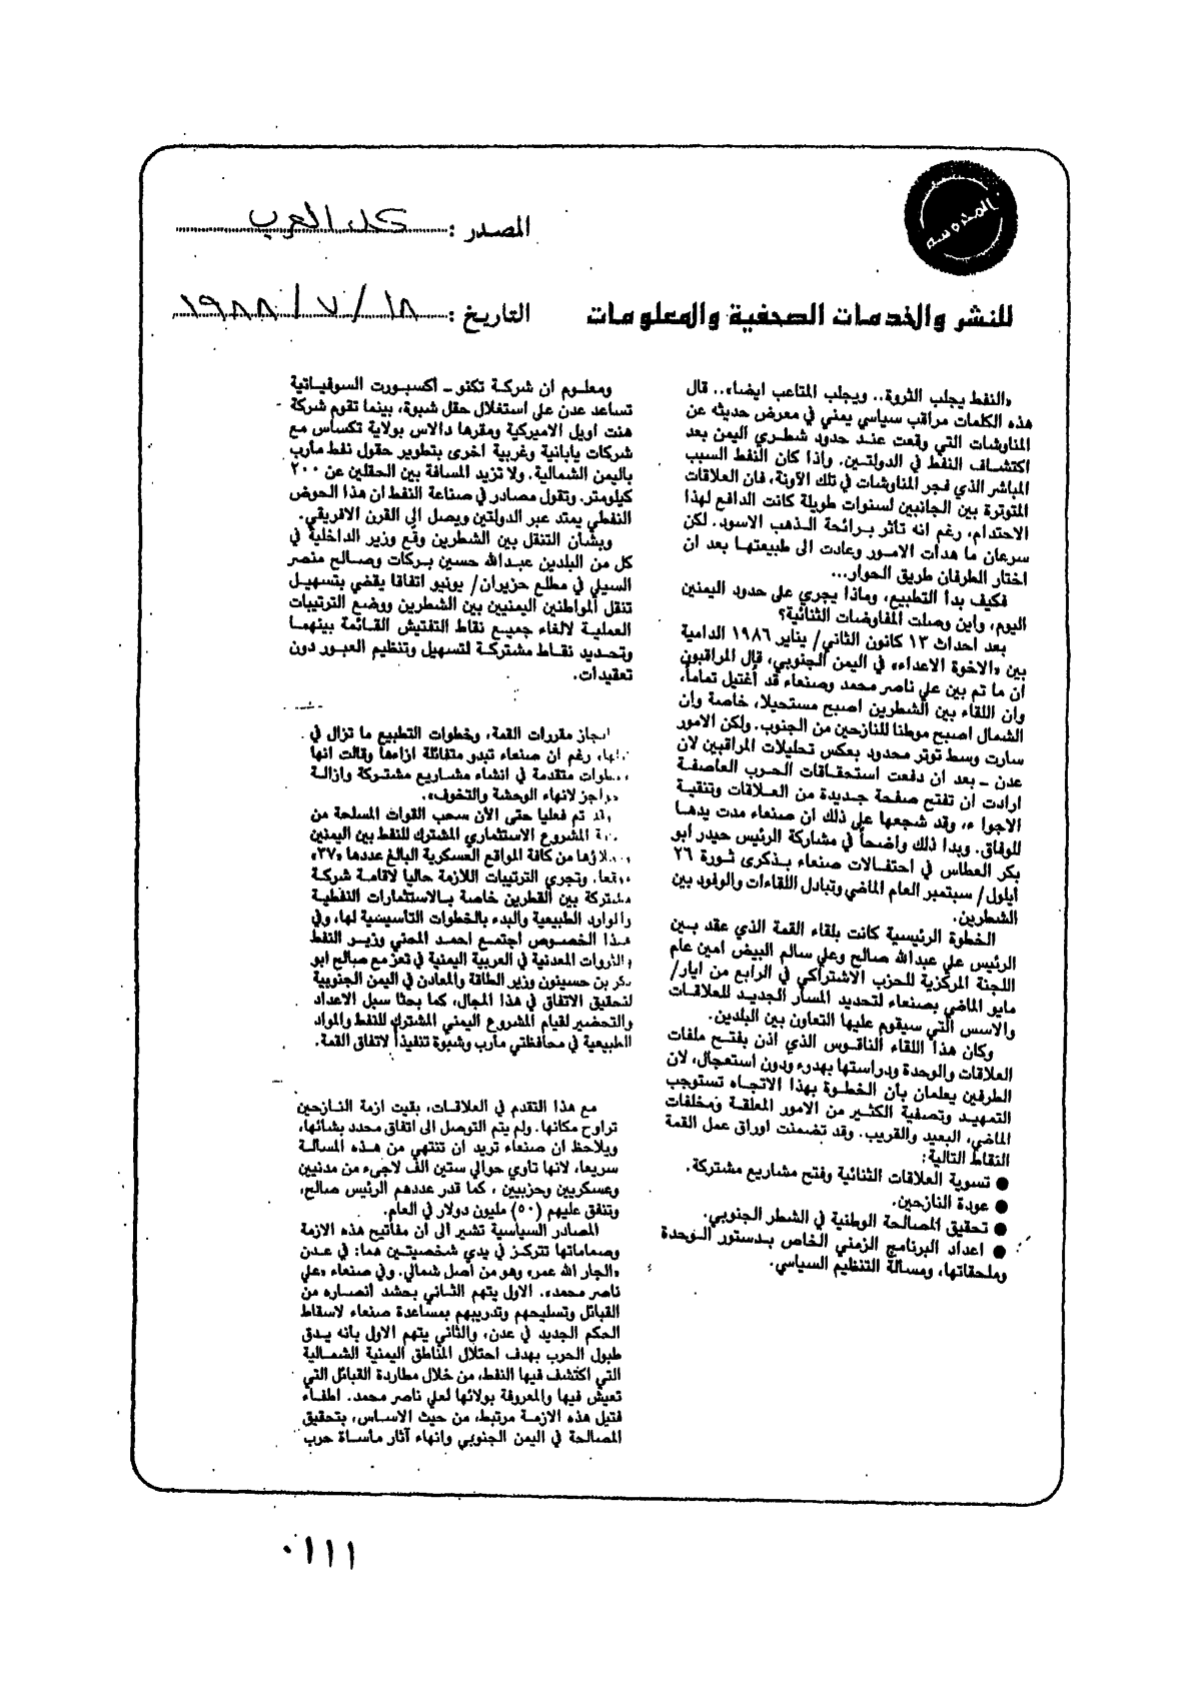 المحروسة
المصدر : كل العرب
للنشر والخدمات الصحفية والمعلومات
التاريخ : ١٨ / ٧ / ١٩٨٨
«النفط يجلب الثروة.. ويجلب المتاعب ايضا».. قال
هذه الكلمات مراقب سياسي يمني في معرض حديثه عن
المناوشات التي وقعت عند حدود شطري اليمن بعد
اكتشاف النفط في الدولتين. واذا كان النفط السبب
المباشر الذي فجر المناوشات في تلك الآونة، فان العلاقات
المتوترة بين الجانبين لسنوات طويلة كانت الدافع لهذا
الاحتدام، رغم انه تاثر برائحة الذهب الاسود. لكن
سرعان ما هدأت الامور وعادت الى طبيعتها بعد ان
اختار الطرفان طريق الحوار...
فكيف بدأ التطبيع، وماذا يجري على حدود اليمنين
اليوم، واين وصلت المفاوضات الثنائية؟
بعد احداث ١٣ كانون الثاني/ يناير ١٩٨٦ الدامية
بين «الاخوة الاعداء» في اليمن الجنوبي، قال المراقبون
ان ما تم بين علي ناصر محمد وصنعاء قد أغتيل تماماً،
وان اللقاء بين الشطرين اصبح مستحيلا، خاصة وان
الشمال اصبح موطنا للنازحين من الجنوب. ولكن الامور
سارت وسط توتر محدود بعكس تحليلات المراقبين لان
عدن ـ بعد ان دفعت استحقاقات الحرب العاصفة
ارادت ان تفتح صفحة جديدة من العلاقات وتنقية
الاجواء، وقد شجعها على ذلك ان صنعاء مدت يدها
للوفاق. وبدا ذلك واضحاً في مشاركة الرئيس حيدر ابو
بكر العطاس في احتفالات صنعاء بذكرى ثورة ٢٦
ايلول/ سبتمبر العام الماضي وتبادل اللقاءات والوفود بين
الشطرين.
الخطوة الرئيسية كانت بلقاء القمة الذي عقد بين
الرئيس علي عبدالله صالح وعلي سالم البيض امين عام
اللجنة المركزية للحزب الاشتراكي في الرابع من ايار/
مايو الماضي بصنعاء لتحديد المسار الجديد للعلاقات
والاسس التي سيقوم عليها التعاون بين البلدين.
وكان هذا اللقاء الناقوس الذي اذن بفتح ملفات
العلاقات والوحدة ودراستها بهدوء ودون استعجال، لان
الطرفين يعلمان بأن الخطوة بهذا الاتجاه تستوجب
التمهيد وتصفية الكثير من الامور المعلقة ومخلفات
الماضي، البعيد والقريب. وقد تضمنت اوراق عمل القمة
النقاط التالية:
● تسوية العلاقات الثنائية وفتح مشاريع مشتركة.
● عودة النازحين.
● تحقيق المصالحة الوطنية في الشطر الجنوبي.
● اعداد البرنامج الزمني الخاص بدستور الوحدة
وملحقاتها، ومسألة التنظيم السياسي.
ومعلوم ان شركة تكنو ـ اكسبورت السوفياتية
تساعد عدن على استغلال حقل شبوة، بينما تقوم شركة
هنت اويل الاميركية ومقرها دالاس بولاية تكساس مع
شركات يابانية وغربية اخرى بتطوير حقول نفط مأرب
باليمن الشمالية. ولا تزيد المسافة بين الحقلين عن ٢٠٠
كيلومتر. وتقول مصادر في صناعة النفط ان هذا الحوض
النفطي يمتد عبر الدولتين ويصل الى القرن الافريقي.
وبشأن التنقل بين الشطرين وقّع وزير الداخلية في
كل من البلدين عبدالله حسين بركات وصالح منصر
السيلي في مطلع حزيران/ يونيو اتفاقا يقضي بتسهيل
تنقل المواطنين اليمنيين بين الشطرين ووضع الترتيبات
العملية لالغاء جميع نقاط التفتيش القائمة بينهما
وتحديد نقاط مشتركة لتسهيل وتنظيم العبور دون
تعقيدات.
انجاز مقررات القمة، وخطوات التطبيع ما تزال في
رغم ان صنعاء تبدو متفائلة ازاءها وقالت انها
خطوات متقدمة في انشاء مشاريع مشتركة وازالة
حواجز لانهاء الوحشة والتخوف».
تم فعليا حتى الآن سحب القوات المسلحة من
المشروع الاستثماري المشترك للنفط بين اليمنين
من كافة المواقع العسكرية البالغ عددها «٣٧»
موقعا. وتجري الترتيبات اللازمة حاليا لاقامة شركة
مشتركة بين القطرين خاصة بالاستثمارات النفطية
والموارد الطبيعية والبدء بالخطوات التأسيسية لها، وفي
هذا الخصوص اجتمع احمد المحني وزير النفط
والثروات المعدنية في العربية اليمنية في تعز مع صالح ابو
بكر بن حسينون وزير الطاقة والمعادن في اليمن الجنوبية
لتحقيق الاتفاق في هذا المجال، كما بحثا سبل الاعداد
والتحضير لقيام المشروع اليمني المشترك للنفط والمواد
الطبيعية في محافظتي مارب وشبوة تنفيذاً لاتفاق القمة.
مع هذا التقدم في العلاقات، بقيت ازمة النازحين
تراوح مكانها. ولم يتم التوصل الى اتفاق محدد بشانها،
ويلاحظ ان صنعاء تريد ان تنتهي من هذه المسالة
سريعا، لانها تاوي حوالي ستين الف لاجيء من مدنيين
وعسكريين وحزبيين ، كما قدر عددهم الرئيس صالح،
وتنفق عليهم (٥٠) مليون دولار في العام.
المصادر السياسية تشير الى ان مفاتيح هذه الازمة
وصماماتها تتركز في يدي شخصيتين هما: في عدن
«الجار الله عمر» وهو من اصل شمالي. وفي صنعاء «علي
ناصر محمد». الاول يتهم الثاني بحشد انصاره من
القبائل وتسليحهم وتدريبهم بمساعدة صنعاء لاسقاط
الحكم الجديد في عدن، والثاني يتهم الاول بأنه يدق
طبول الحرب بهدف احتلال المناطق اليمنية الشمالية
التي اكتشف فيها النفط، من خلال مطاردة القبائل التي
تعيش فيها والمعروفة بولائها لعلي ناصر محمد. اطفاء
فتيل هذه الازمة مرتبط، من حيث الاساس، بتحقيق
المصالحة في اليمن الجنوبي وانهاء آثار مأساة حرب
٠١١١